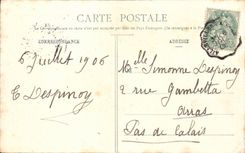 CARTE POSTALE
CORRESPONDANCE
ADRESSE
6 Juillet 1906
E Despinoy
Melle Simonne Despinoy
2 rue Gambetta
Arras
Pas de Calais